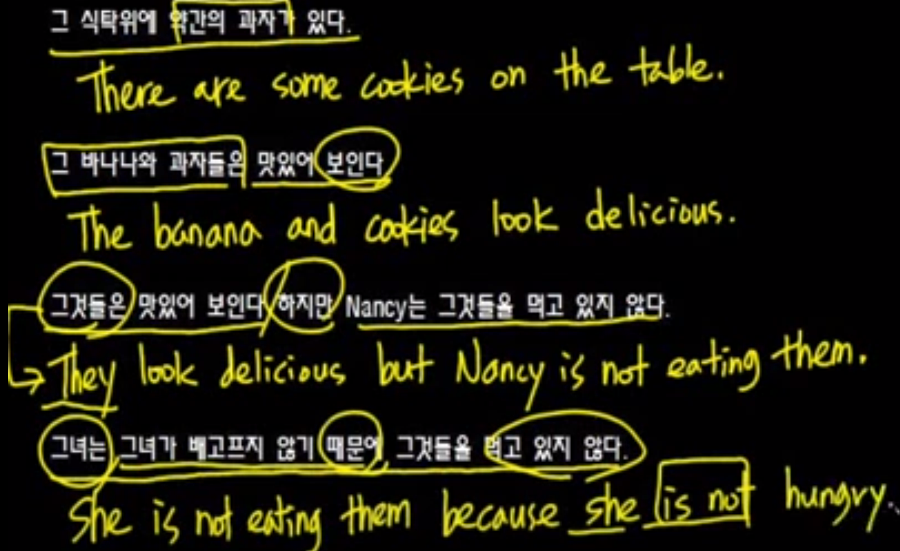 그 식탁위에 약간의 과자가 있다.
There are some cookies on the table.
그 바나나와 과자들은 맛있어 보인다
The banana and cookies look delicious.
그것들은 맛있어 보인다 하지만 Nancy는 그것들을 먹고 있지 않다.
They look delicious but Nancy is not eating them.
그녀는 그녀가 배고프지 않기 때문에 그것들을 먹고 있지 않다.
She is not eating them because she is not hungry.